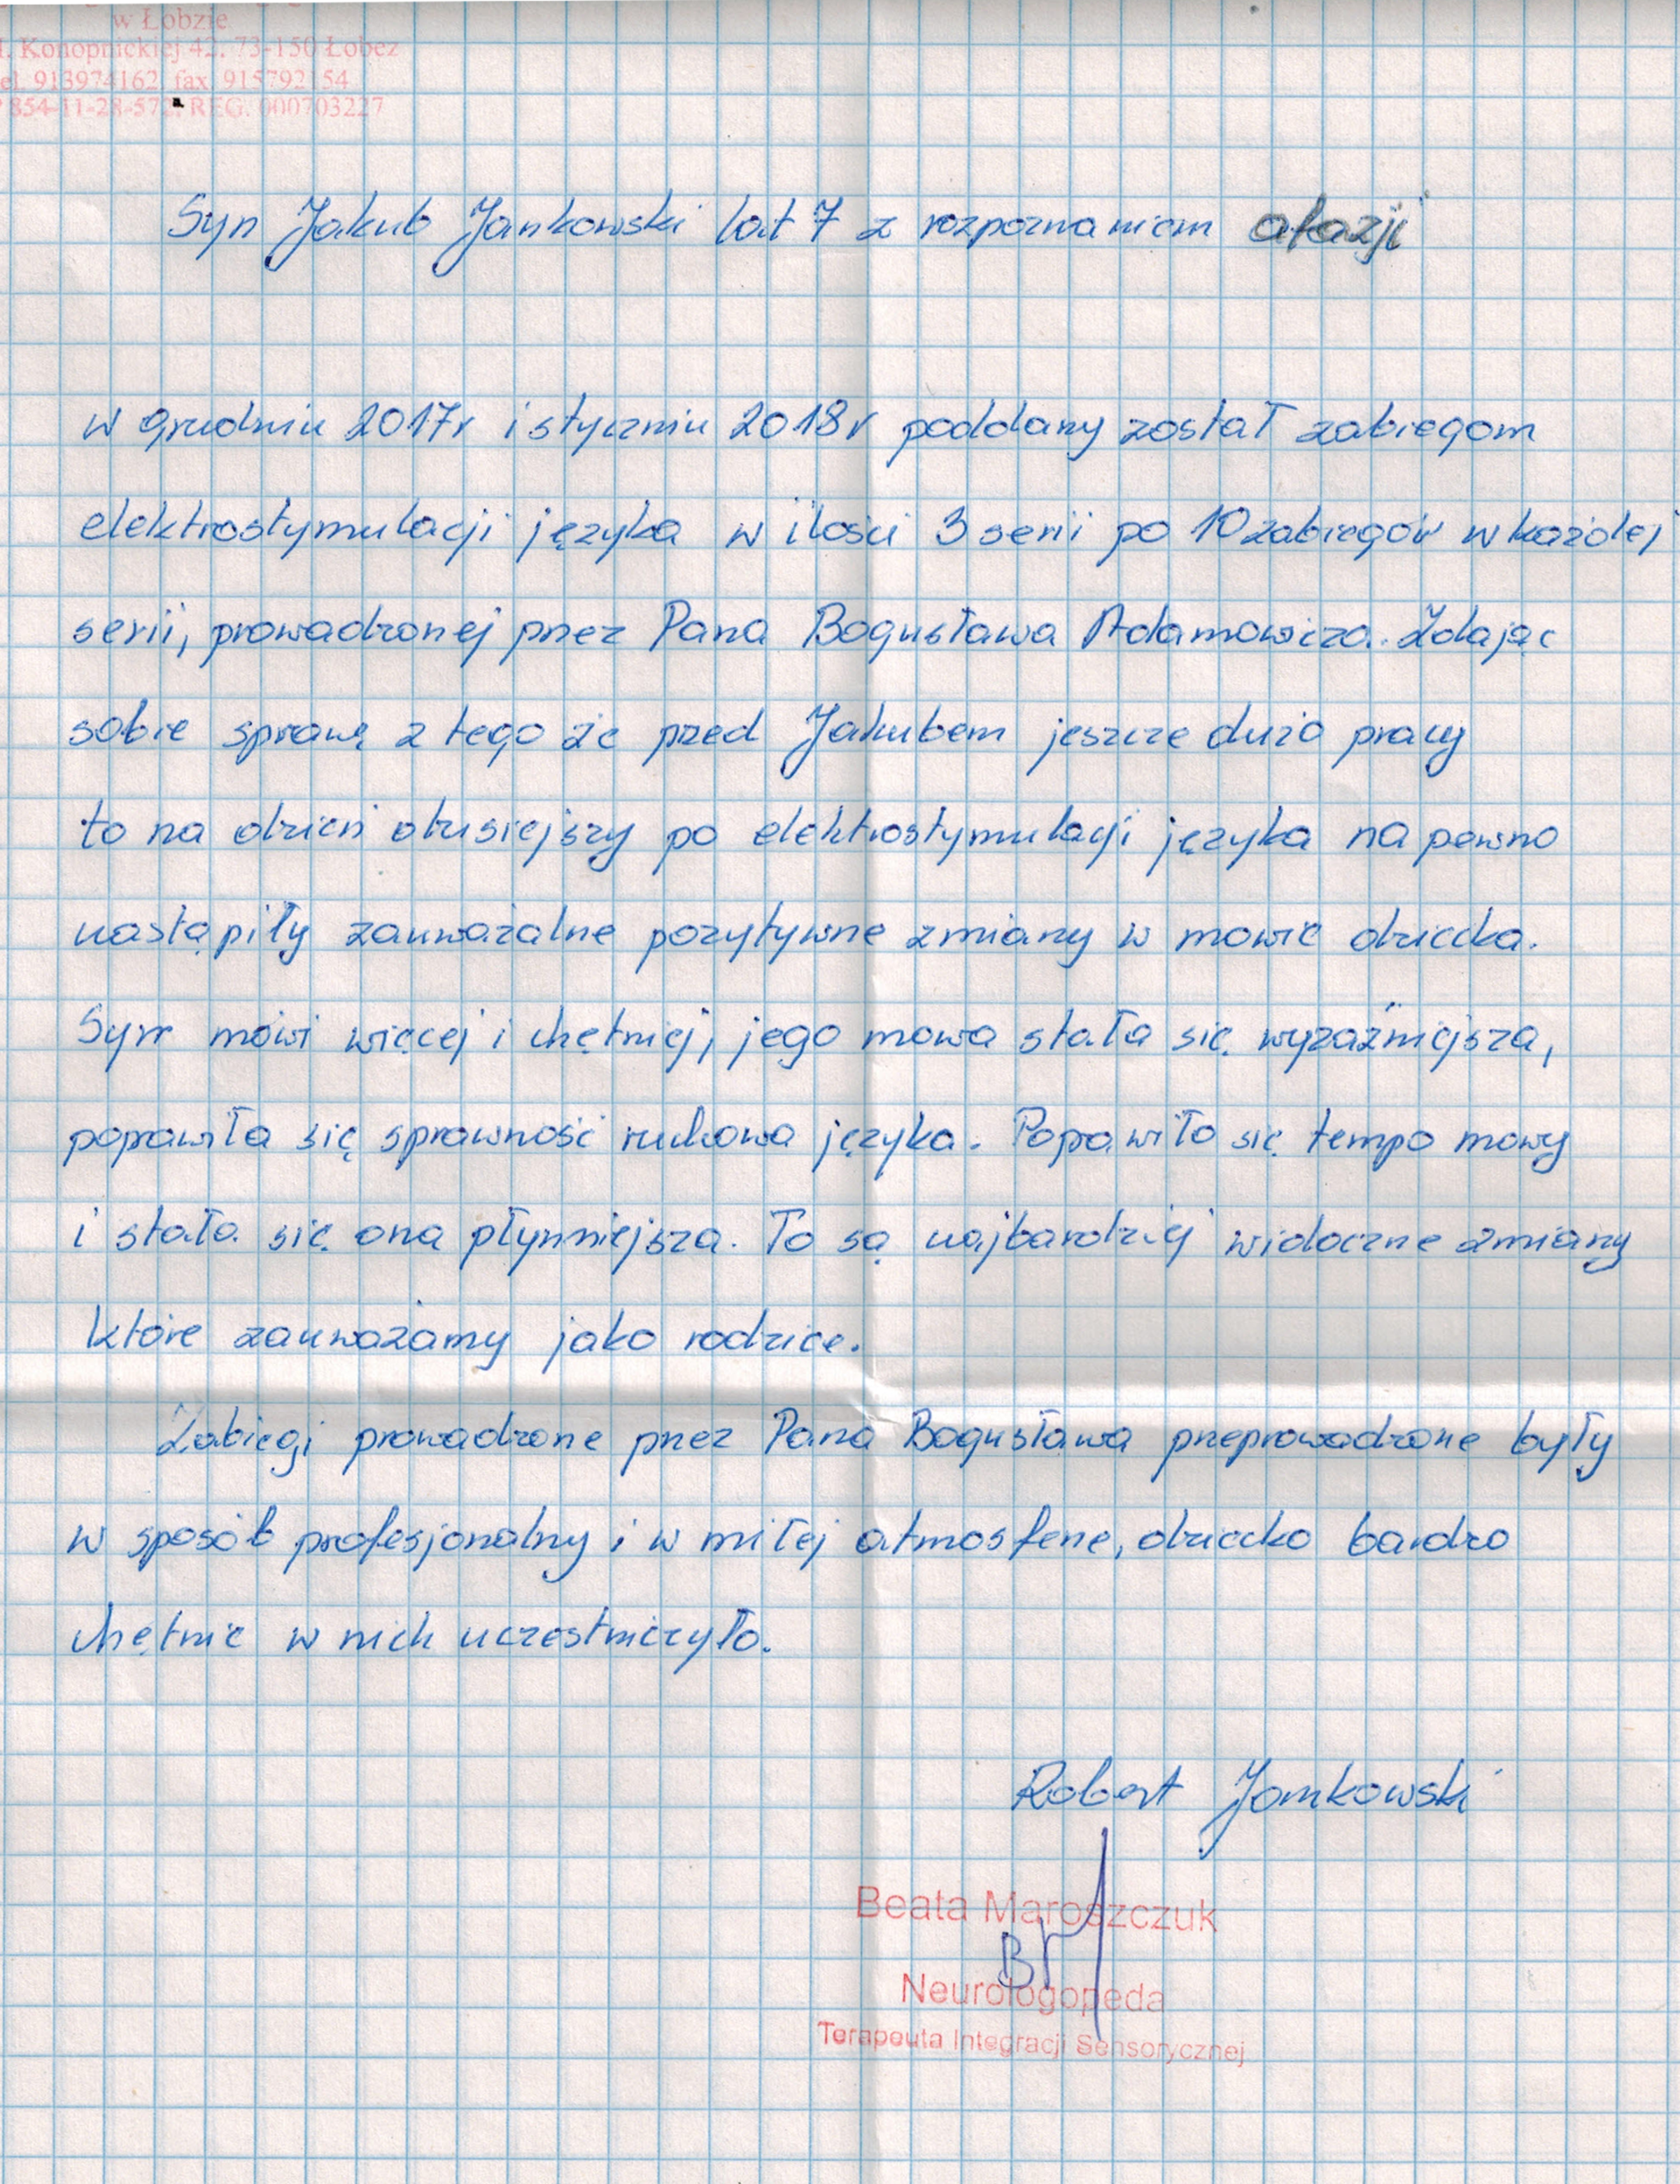 w Łobzie
. Konopnickiej 42, 73-150 Łobez
el. 913974162, fax. 915792154
854-11-28-572, REG. 000703227
Syn Jakub Jankowski lat 7 z rozpoznaniem afazji
w grudniu 2017r i styczniu 2018r poddany został zabiegom
elektrostymulacji języka w ilości 3 serii po 10 zabiegów w każdej
serii, prowadzonej przez Pana Bogusława Adamowicza. Zdając
sobie sprawę z tego że przed Jakubem jeszcze dużo pracy
to na dzień dzisiejszy po elektrostymulacji języka na pewno
nastąpiły zauważalne pozytywne zmiany w mowie dziecka.
Syn mówi więcej i chętniej, jego mowa stała się wyraźniejsza,
poprawiła się sprawność ruchowa języka. Poprawiło się tempo mowy
i stała się ona płynniejsza. To są najbardziej widoczne zmiany
które zauważamy jako rodzice.
Zabiegi prowadzone przez Pana Bogusława przeprowadzone były
w sposób profesjonalny i w miłej atmosferze, dziecko bardzo
chętnie w nich uczestniczyło.
Robert Jankowski
Beata Maroszczuk
Neurologopeda
Terapeuta Integracji Sensorycznej